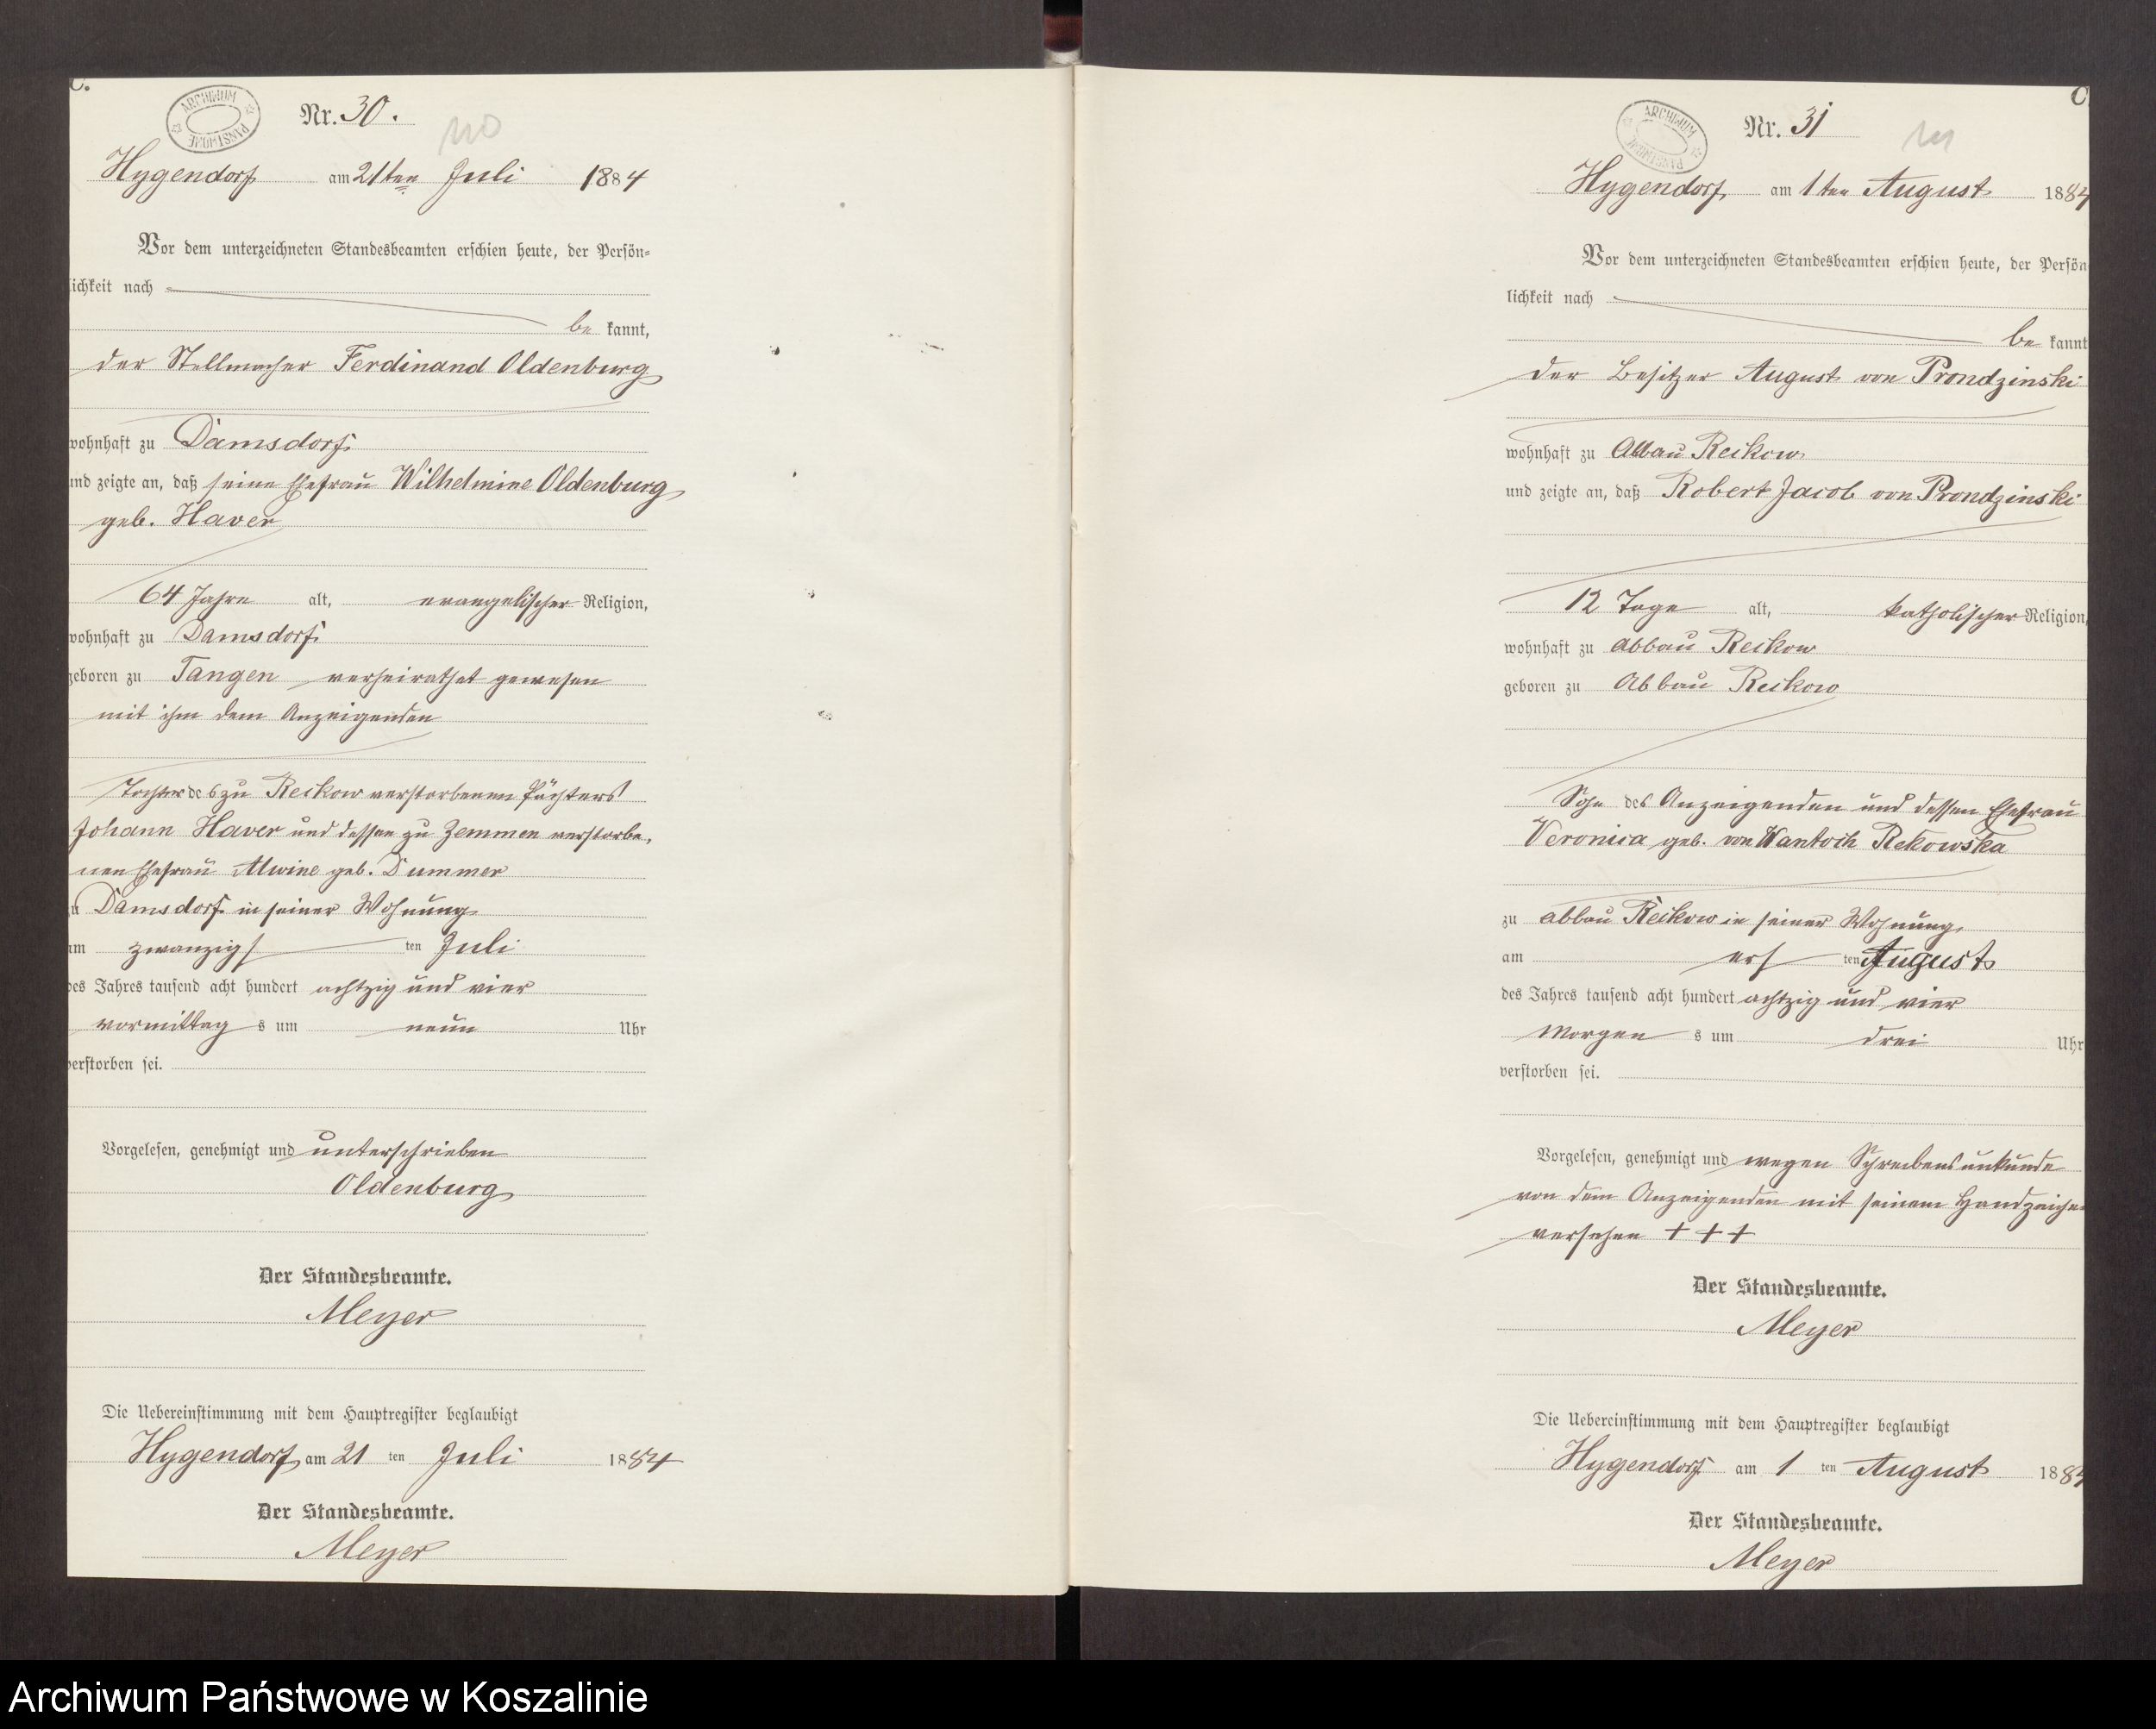 C.
ARCHIWUM PAŃSTWOWE
Nr. 30.
110
Hygendorf am 21ten Juli 1884
Vor dem unterzeichneten Standesbeamten erschien heute, der Persön=
lichkeit nach
be kannt,
der Stellmacher Ferdinand Oldenburg
wohnhaft zu Damsdorf
und zeigte an, daß seine Ehefrau Wilhelmine Oldenburg
geb. Haver
64 Jahre alt, evangelischer Religion,
wohnhaft zu Damsdorf
geboren zu Tangen verheirathet gewesen
mit ihm dem Anzeigenden
Tochter des zu Reckow verstorbenen Pächters
Johann Haver und dessen zu Zemmen verstorbe,
nen Ehefrau Alwine geb. Dummer
zu Damsdorf in seiner Wohnung
am zwanzigs ten Juli
des Jahres tausend acht hundert achtzig und vier
vormittag s um neun Uhr
verstorben sei.
Vorgelesen, genehmigt und unterschrieben
Oldenburg
Der Standesbeamte.
Meyer
Die Uebereinstimmung mit dem Hauptregister beglaubigt
Hygendorf am 21 ten Juli 1884
Der Standesbeamte.
Meyer
C
ARCHIWUM PAŃSTWOWE
Nr. 31
111
Hygendorf am 1ten August 1884
Vor dem unterzeichneten Standesbeamten erschien heute, der Persön
lichkeit nach
be kannt
der Besitzer August von Prondzinski
wohnhaft zu Abbau Reckow
und zeigte an, daß Robert Jacob von Prondzinski
12 Tage alt, katholischer Religion,
wohnhaft zu Abbau Reckow
geboren zu Abbau Reckow
Sohn des Anzeigenden und dessen Ehefrau
Veronica geb. von Wantoch Rekowska
zu Abbau Reckow in seiner Wohnung
am ers ten August
des Jahres tausend acht hundert achtzig und vier
Morgen s um drei Uhr
verstorben sei.
Vorgelesen, genehmigt und wegen Schreibensunkunde
von dem Anzeigenden mit seinem Handzeichen
versehen + + +
Der Standesbeamte.
Meyer
Die Uebereinstimmung mit dem Hauptregister beglaubigt
Hygendorf am 1 ten August 1884
Der Standesbeamte.
Meyer
Archiwum Państwowe w Koszalinie